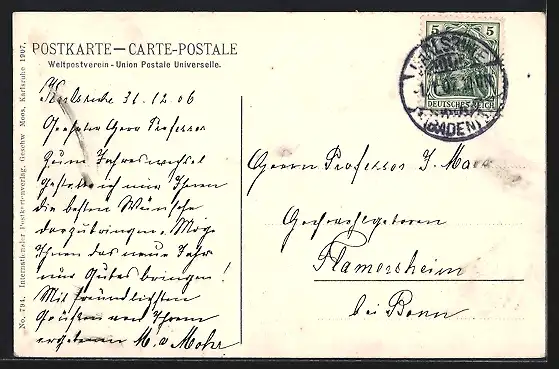 POSTKARTE — CARTE-POSTALE
Weltpostverein - Union Postale Universelle.
Karlsruhe 31.12.06
Geehrter Herr Professor
Zum Jahreswechsel
gestatte ich mir Ihnen
die besten Wünsche
darzubringen. Möge
Ihnen das neue Jahr
nur Gutes bringen!
Mit freundlichsten
Grüßen von Ihrem
ergebenen M. v Mohr
No. 794. Internationaler Postkartenverlag. Geschw. Moos, Karlsruhe 1907.
5 5
DEUTSCHES REICH
KARLSRUHE
(BADEN)
Herrn Professor J.
Hochwohlgeboren
Flamersheim
bei Bonn